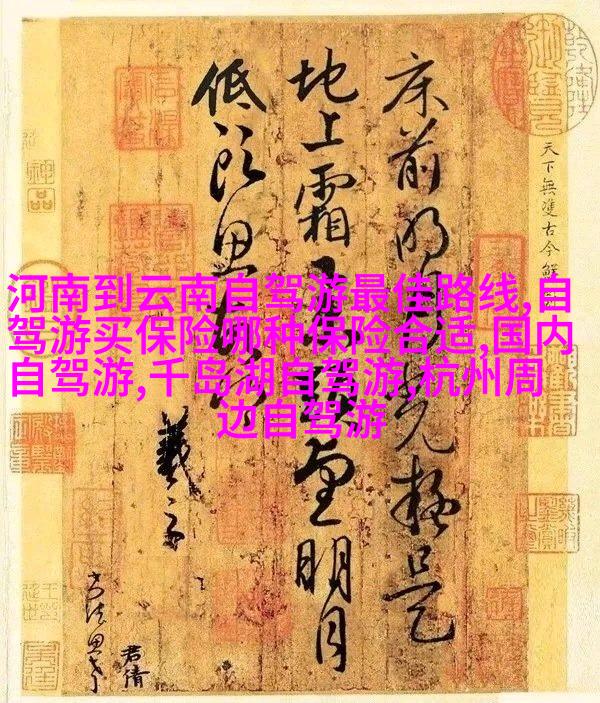 河南到云南自驾游最佳路线,自
驾游买保险哪种保险合适,国内
自驾游,千岛湖自驾游,杭州周
边自驾游
天下無雙古今鮮
床前明月光疑是
地上霜舉头望明月
低头思故乡
羲之
君倩
神品